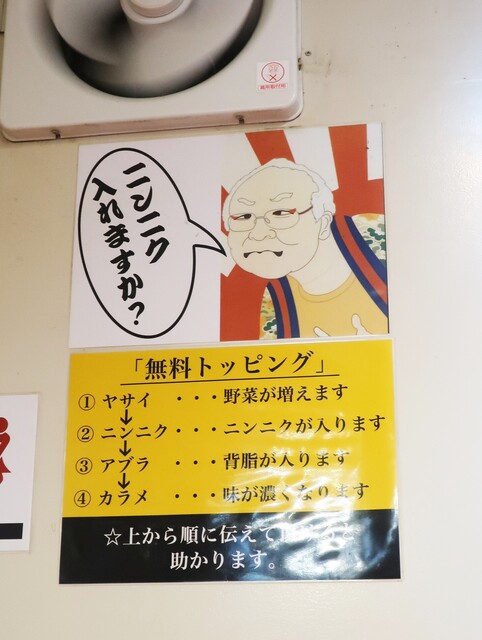 ニンニク
入れますか?
「無料トッピング」
① ヤサイ ・・・野菜が増えます
↓
② ニンニク・・・ニンニクが入ります
↓
③ アブラ ・・・背脂が入ります
↓
④ カラメ ・・・味が濃くなります
☆上から順に伝えて と
助かります。